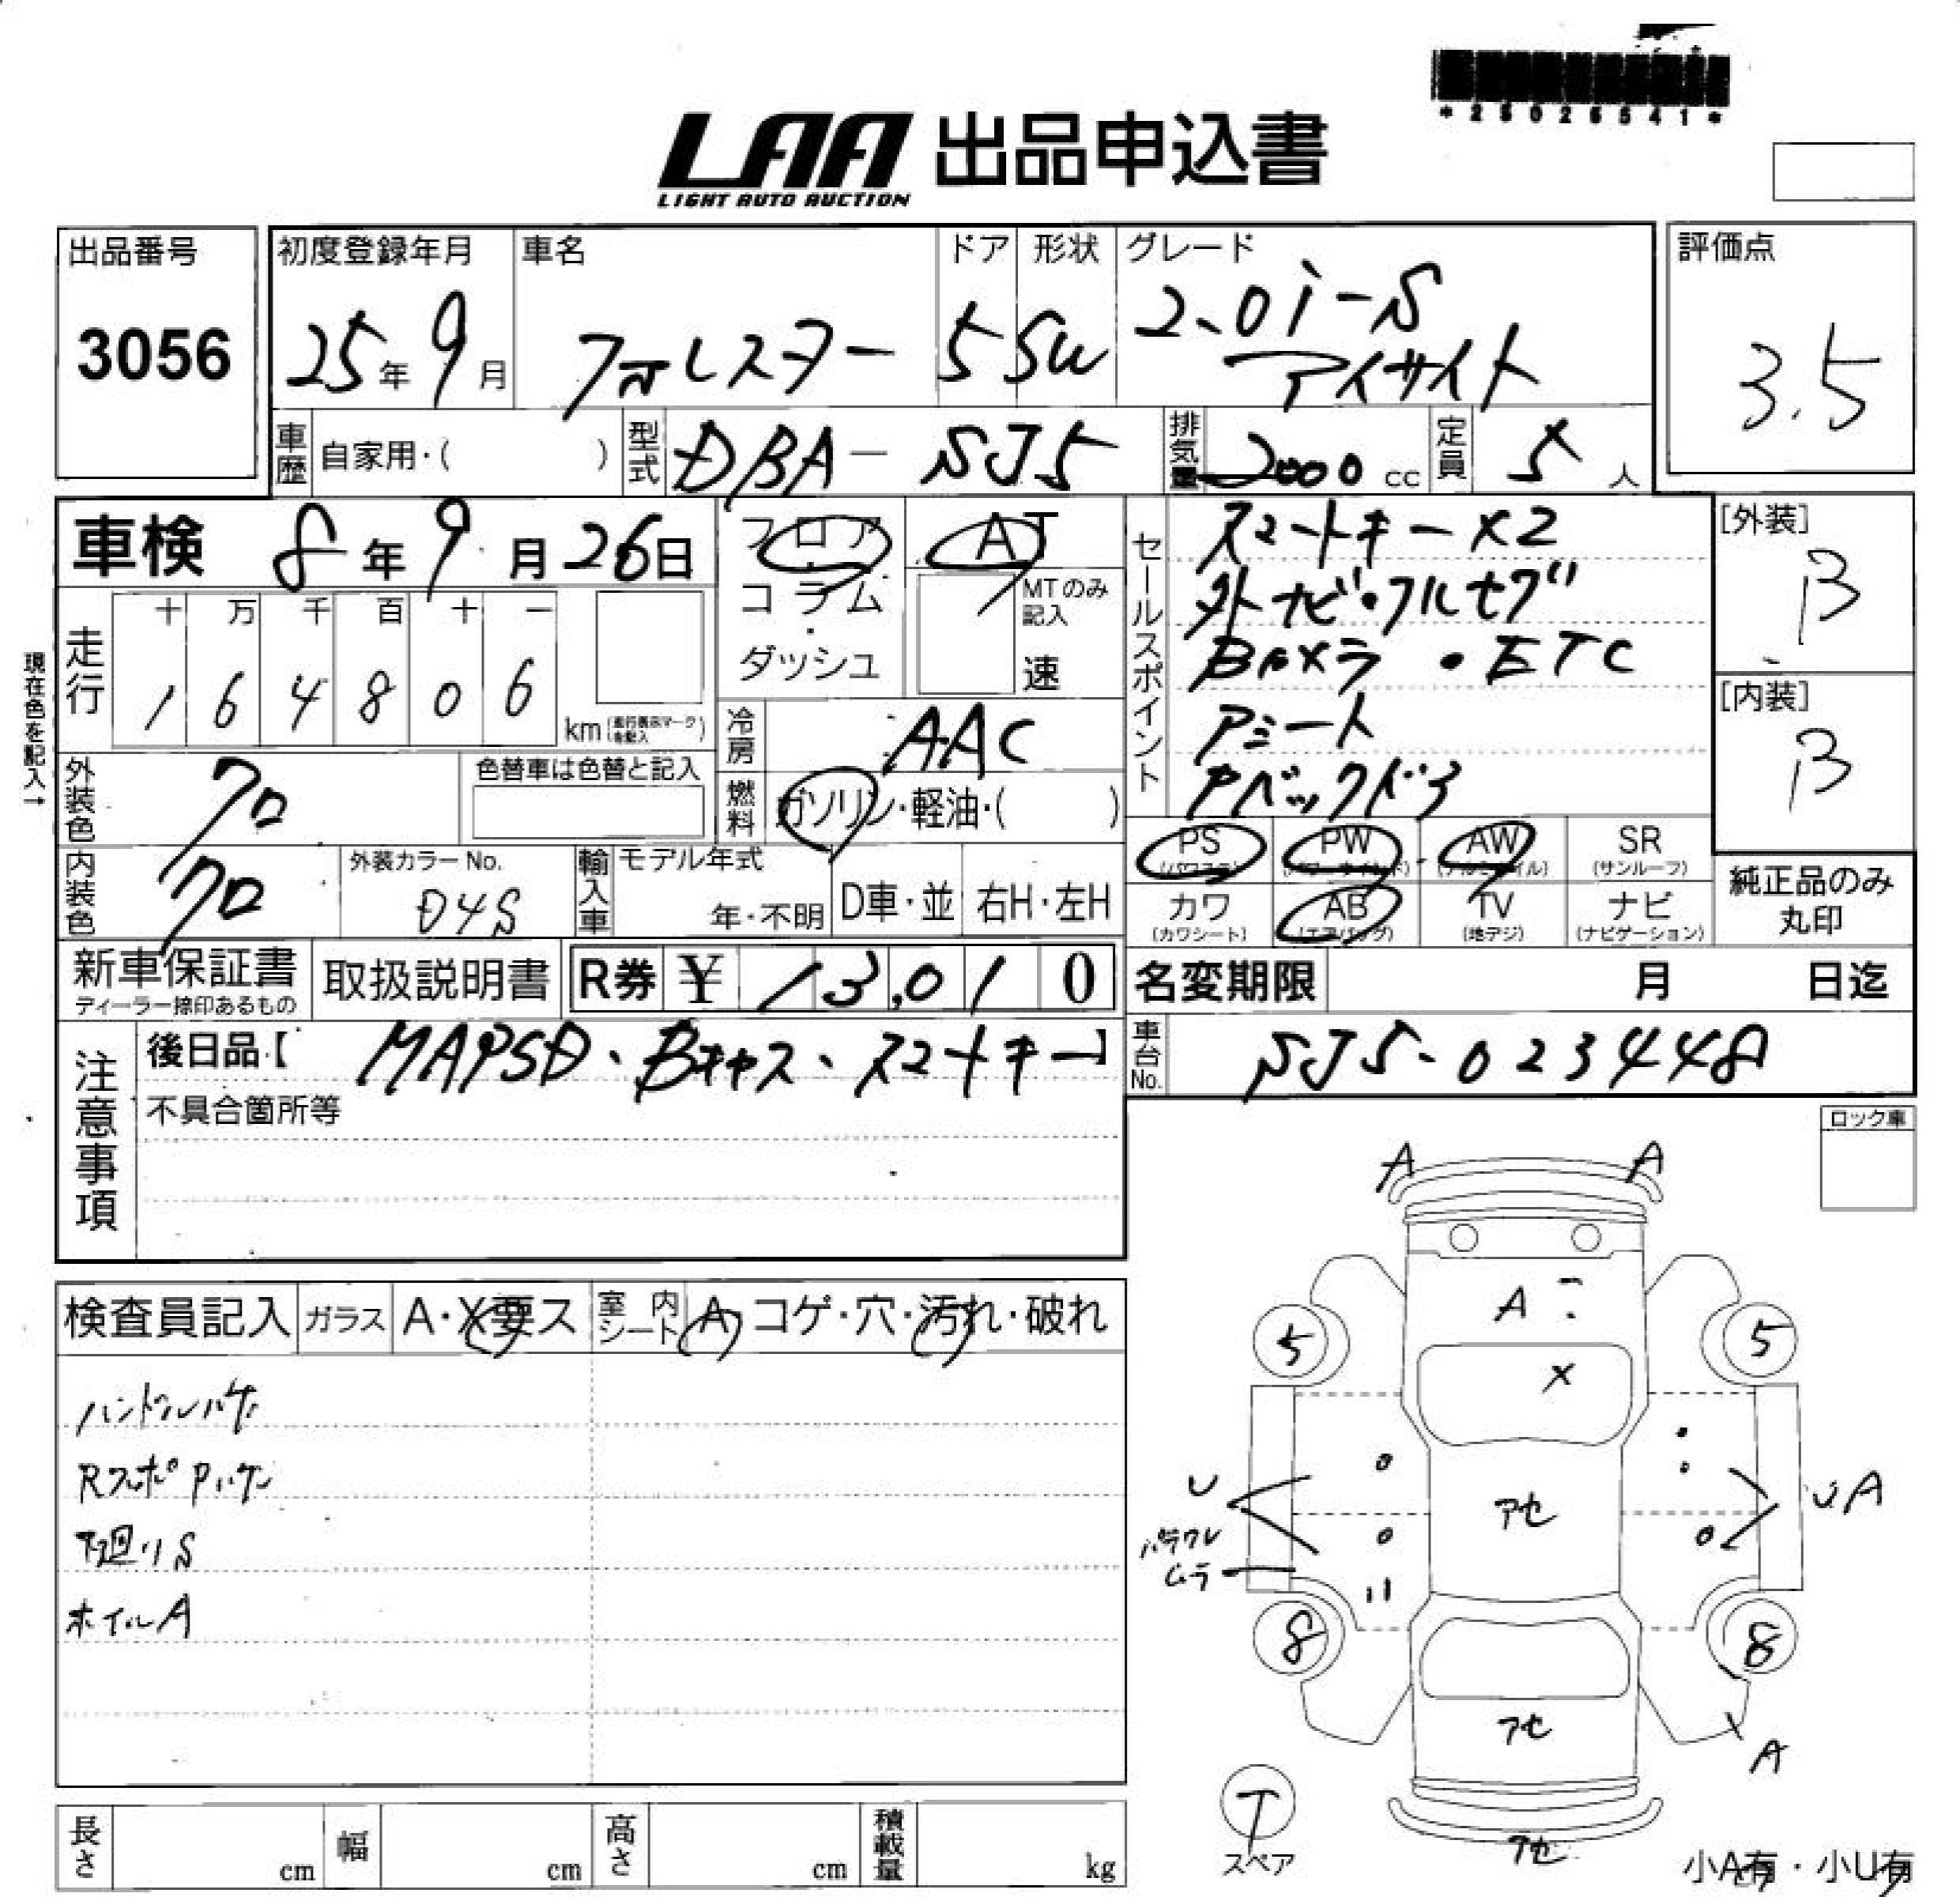 *25026541*
LAA 出品申込書
LIGHT AUTO AUCTION
出品番号
3056
初度登録年月
25年9月
車名
フォレスター
ドア
5
形状
SW
グレード
2.0i-S
アイサイト
評価点
3.5
車歴 自家用・( )
型式 DBA-SJ5
排気量 2000 cc
定員 5人
車検 8年9月26日
フロア・コラム・ダッシュ
AT
MTのみ記入
速
セールスポイント
スマートキー×2
外ナビ・フルセグ
Bカメラ・ETC
Pシート
Pバックドア
[外装]
B
[内装]
B
現在色を記入→
走行
十 万 千 百 十 一
1 6 4 8 0 6
km(走行表示マークを記入)
冷房 AAC
外装色 クロ
色替車は色替と記入
燃料 ガソリン・軽油・( )
内装色 クロ
外装カラーNo.
D4S
輸入車 モデル年式
年・不明
D車・並 右H・左H
PS (パワステ)
PW (パワーウインド)
AW (アルミホイル)
SR (サンルーフ)
カワ (カワシート)
AB (エアバッグ)
TV (地デジ)
ナビ (ナビゲーション)
純正品のみ丸印
新車保証書
ディーラー捺印あるもの
取扱説明書
R券 ¥ 13,010
名変期限 月 日迄
注意事項
後日品【MAPSD、Bキャス、スマートキー】
不具合箇所等
車台No. SJ5-023448
ロック車
検査員記入
ガラス A・X要ス
室内シート A・コゲ・穴・汚れ・破れ
ハンドルハゲ
RスポPハゲ
下廻りS
ホイルA
A A
A
5 5
X
U
UA
アセ
ムラ
8 8
アセ
A
T
スペア
アセ
小A有・小U有
長さ cm
幅 cm
高さ cm
積載量 kg